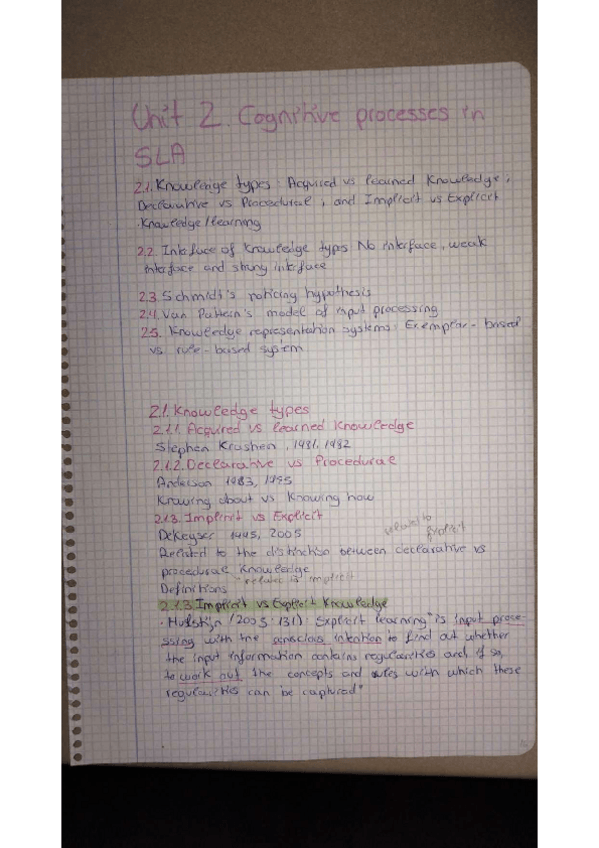 Unit 2. Cognitive processes in
SLA
2.1. Knowledge types: Acquired vs learned Knowledge,
Declarative vs Procedural, and Implicit vs Explicit
Knowledge/learning
2.2. Interface of Knowledge types: No interface, weak
interface and strong interface
2.3. Schmidt's noticing hypothesis
2.4. Van Patten's model of input processing
2.5. Knowledge representation systems: Exemplar-based
vs. rule-based system
2.1. Knowledge types
2.1.1. Acquired vs learned Knowledge
Stephen Krashen, 1981, 1982
2.1.2. Declarative vs Procedural
Anderson 1983, 1995
Knowing about vs Knowing how
2.1.3. Implicit vs Explicit
DeKeyser 1995, 2005
related to
explicit
Related to the distinction between declarative vs
procedural Knowledge
related to implicit
Definitions
2.1.3. Implicit vs Explicit Knowledge
· Hulstijn (2005: 131): Explicit learning "is input proce-
ssing with the conscious intention to find out whether
the input information contains regularities and, if so,
to work out the concepts and rules with which these
regularities can be captured"